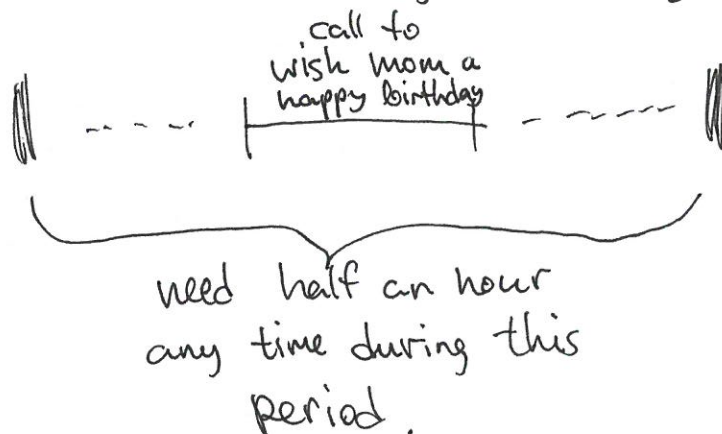 call to
wish mom a
happy birthday
need half an hour
any time during this
period.